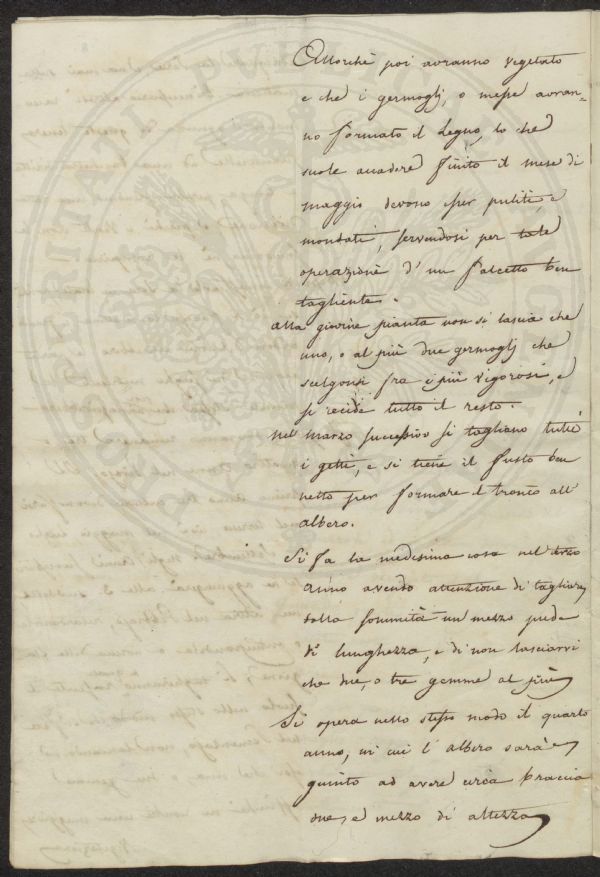 Allorchè poi avranno vegetato
e che i germoglj, o messe avran=
no formato il legno, lo che
suole accadere finito il mese di
maggio devono esser puliti, e
mondati, servendosi per tale
operazione d' un falcetto ben
tagliente.
alla giovine pianta non si lascia che
uno, o al più due germoglj che
scelgonsi fra i più vigorosi, e
si recide tutto il resto.
nel marzo successivo si tagliano tutti
i getti, e si tiene il fusto ben
netto per formare il tronco all'
albero.
Si fa la medesima cosa nel terzo
anno avendo attenzione di tagliare
sulla sommità un mezzo piede
di lunghezza, e di non lasciarvi
che due, o tre gemme al più
Si opera nello stesso modo il quarto
anno, in cui l' albero sarà
giunto ad avere circa braccia
due, e mezzo di altezza